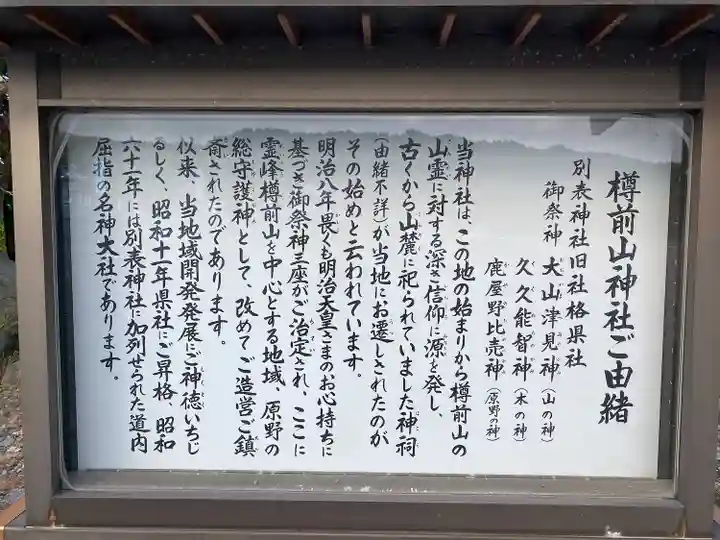 樽前山神社ご由緒
別表神社旧社格県社
御祭神 大山津見神(山の神)
久久能智神(木の神)
鹿屋野比売神(原野の神)
当神社は、この地の始まりから樽前山の
山霊に対する深き信仰に源を発し、
古くから山麓に祀られていました神祠
(由緒不詳)が当地にお遷しされたのが
その始めと云われています。
明治八年畏くも明治天皇さまのお心持ちに
基づき御祭神三座がご治定され、ここに
霊峰樽前山を中心とする地域、原野の
総守護神として、改めてご造営ご鎮
斎されたのであります。
以来、当地域開発発展にご神徳いちじ
るしく、昭和十一年県社にご昇格、昭和
六十一年には別表神社に加列せられた道内
屈指の名神大社であります。